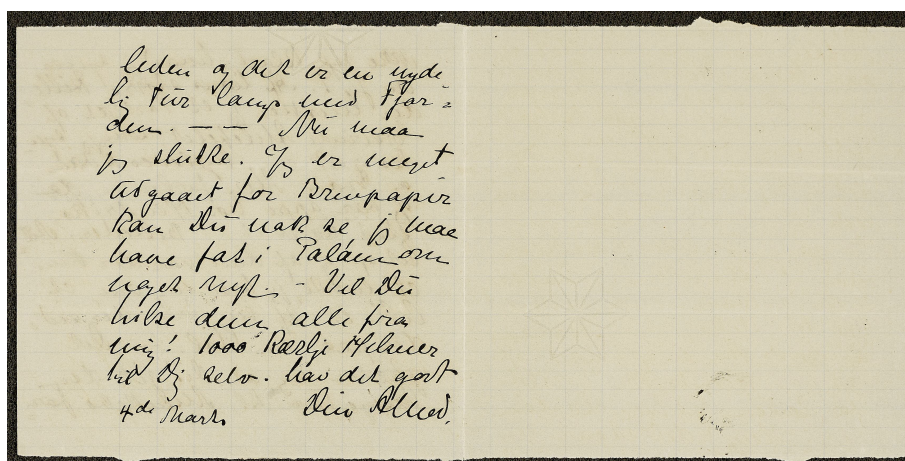 leden og det er en nyde
lig Tur langs med Fjor-
den. — — Nu maa
jeg slutte. Jeg er meget
udgaaet for Brevpapir
kan Du nok se jeg maa
have fat i Paladm om
noget nyt. - Vil Du
hilse dem alle fra
mig! 1000 Kærlje Hilsner
til Dig selv. hav det godt
4de Marts Din